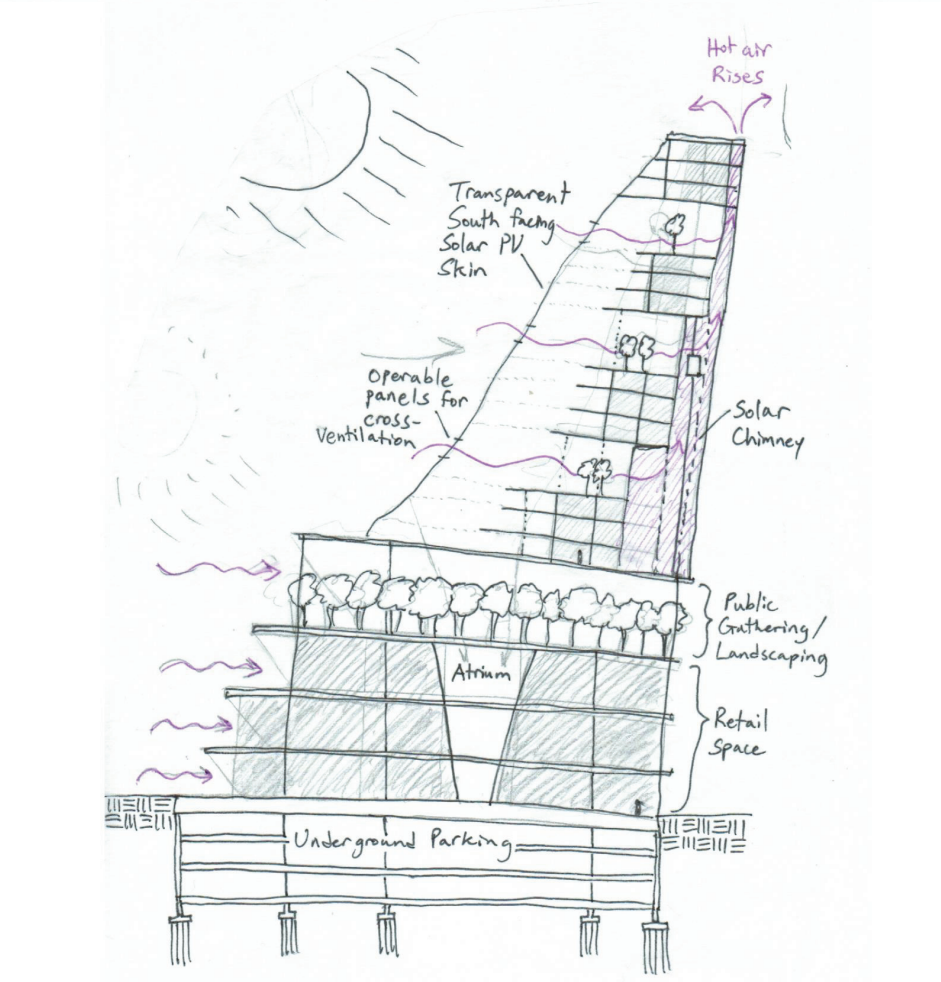 Hot air
Rises
Transparent
South facing
Solar PV
Skin
Operable
panels for
cross-
Ventilation
Solar
Chimney
Public
Gathering/
Landscaping
Atrium
Retail
Space
Underground Parking